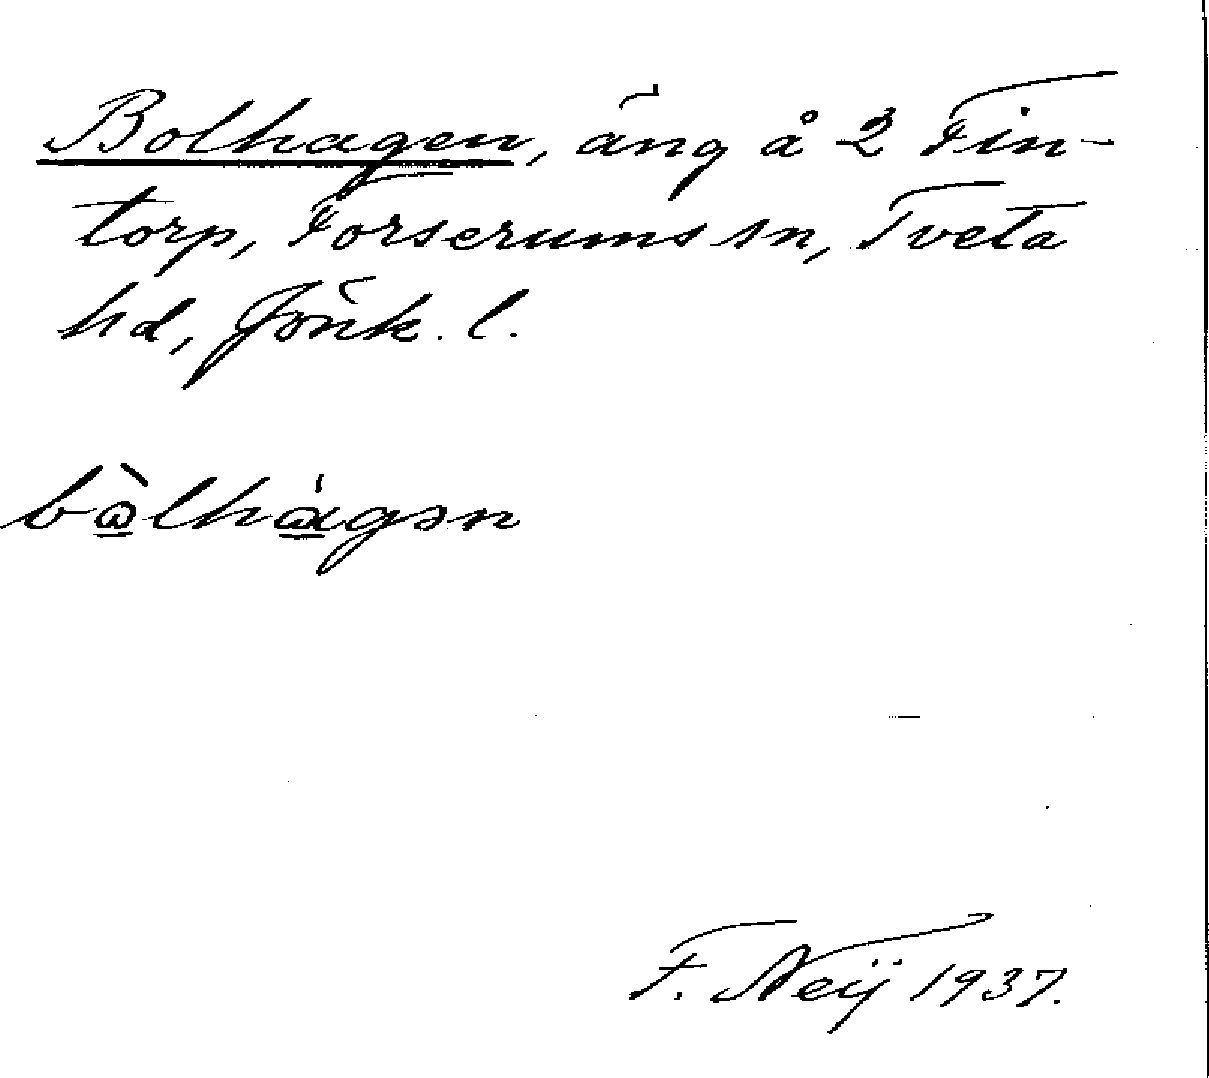 Bolhagen, äng å 2 Fin-
torp, Forserums sn, Tveta
hd, Jönk. l.
F. Neij 1937.